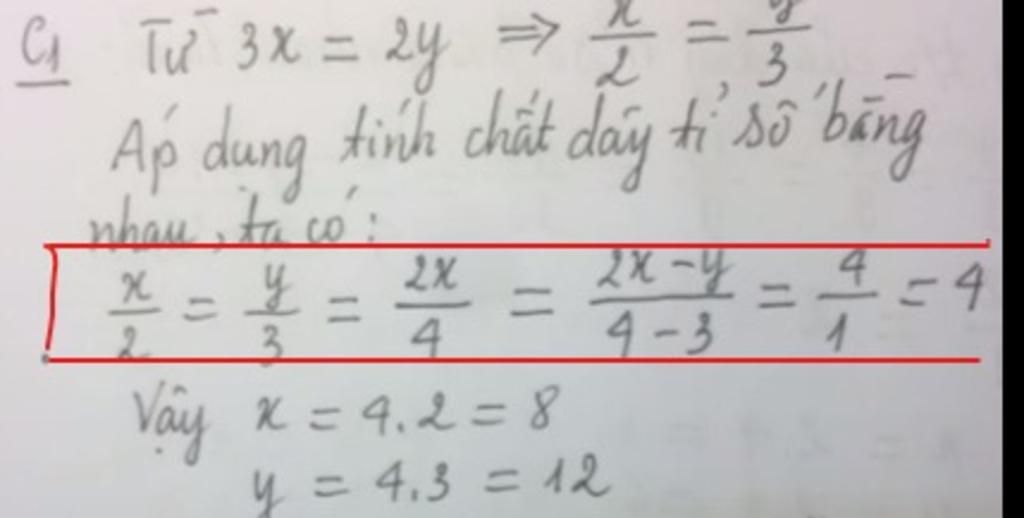 C1 Từ 3x = 2y ⇒ x/2 = y/3
Áp dụng tính chất dãy tỉ số bằng
nhau, ta có:
x/2 = y/3 = 2x/4 = (2x - y)/(4 - 3) = 4/1 = 4
Vậy x = 4.2 = 8
y = 4.3 = 12